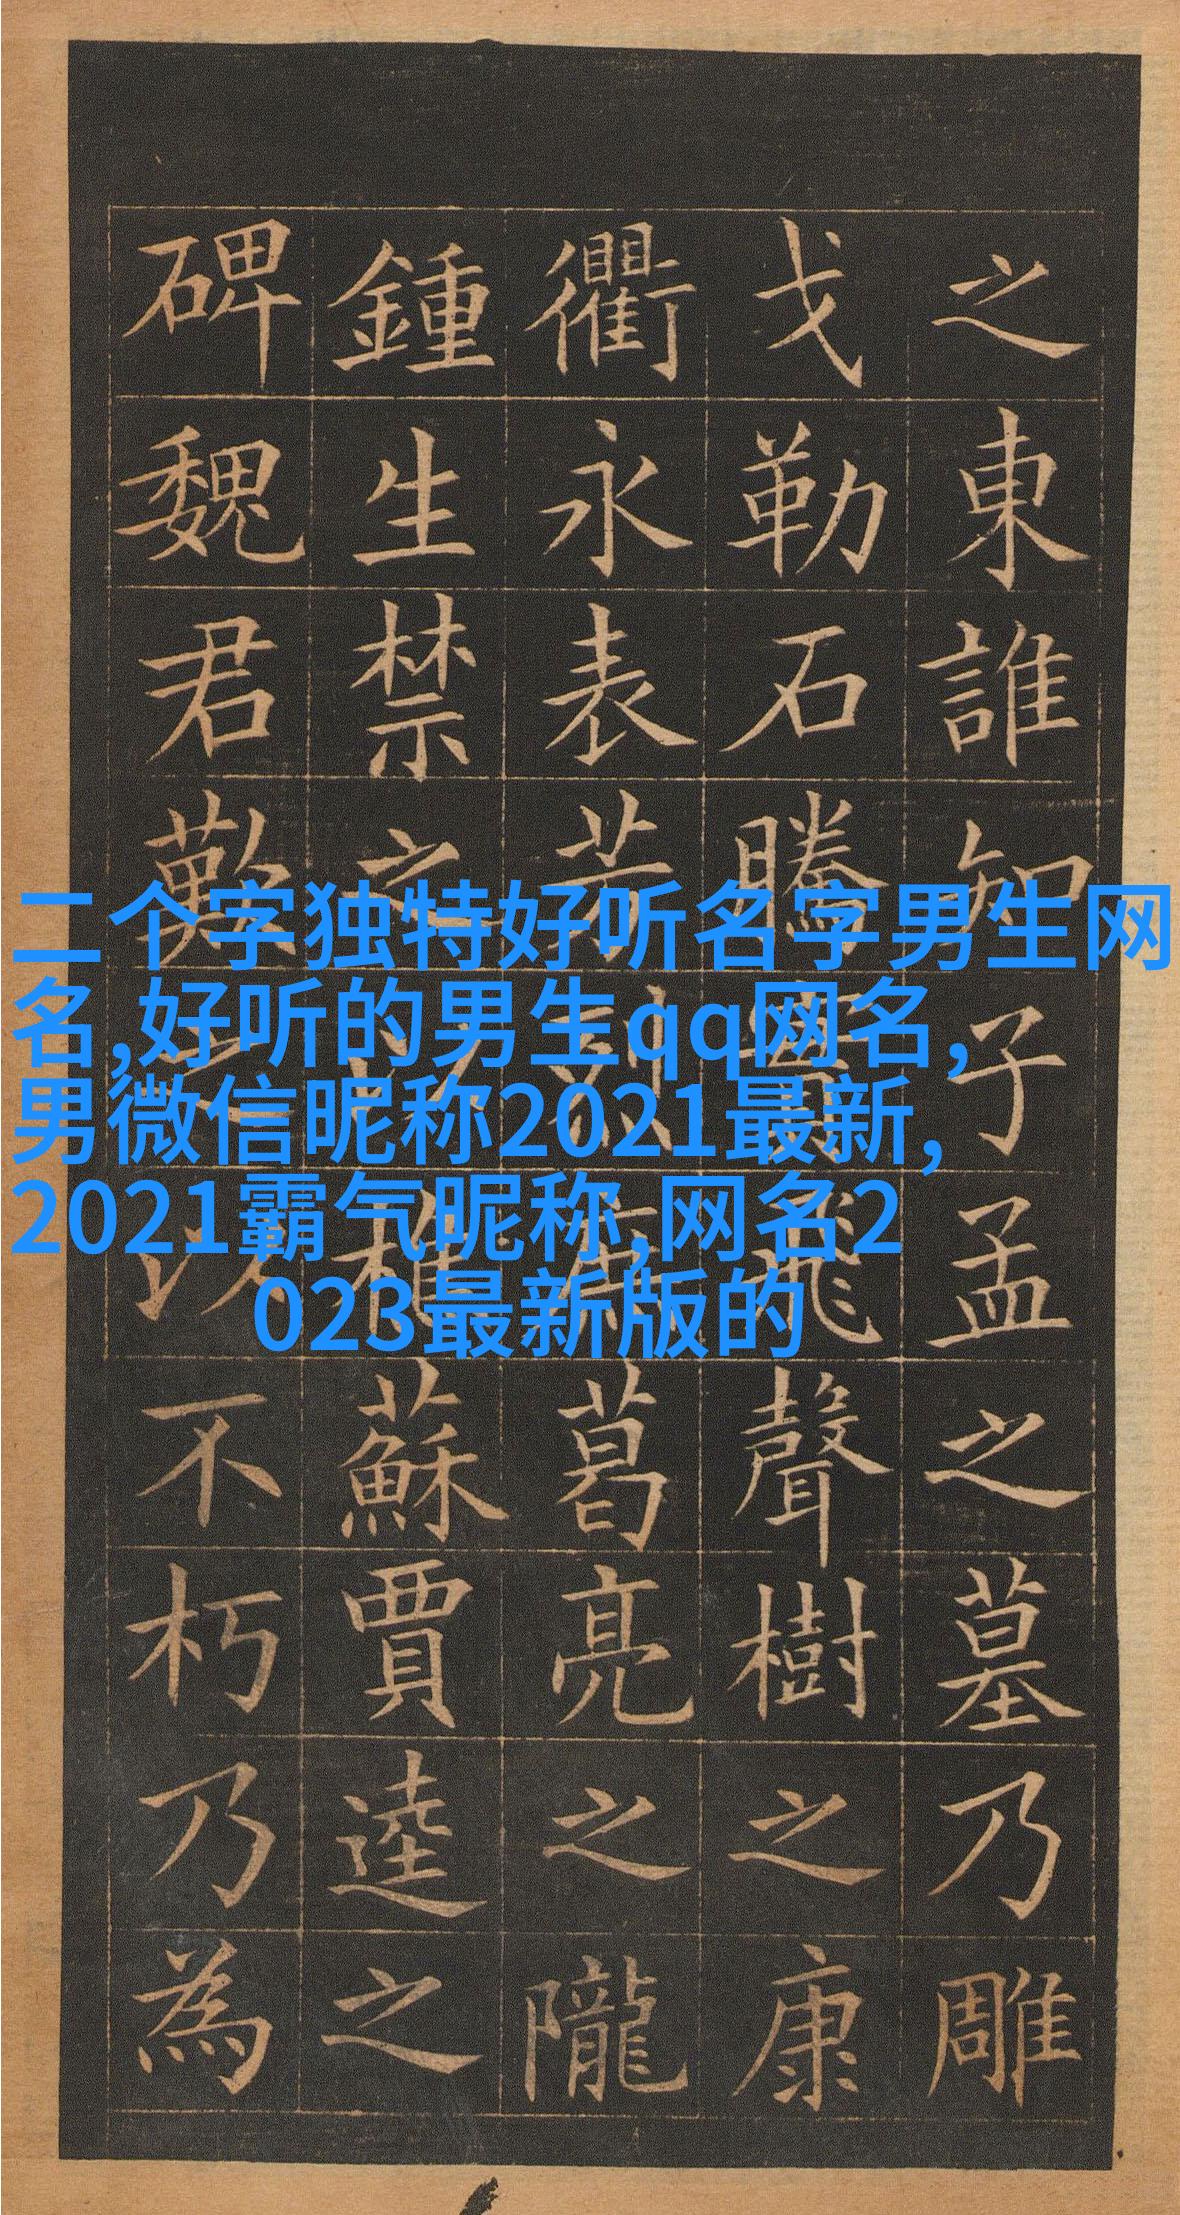 之東誰知子孟之墓乃雕
戈勒石騰實飛聲樹之康
衢永表芳烈庶葛亮之隴
鍾生禁之以樵蘇賈逵之
碑魏君歎之以不朽乃為
二个字独特好听名字男生网
名,好听的男生qq网名,
男微信昵称2021最新,
2021霸气昵称,网名2
023最新版的